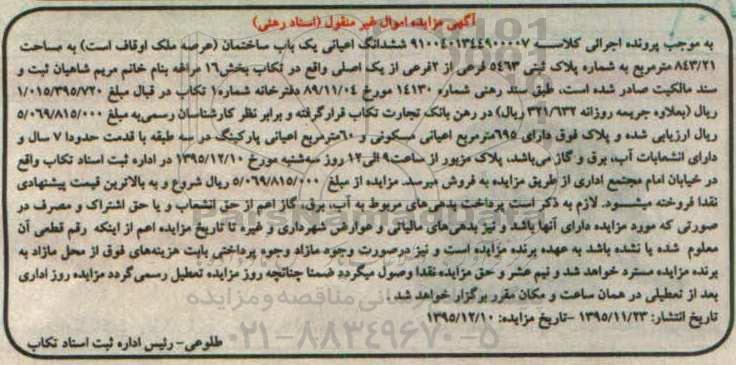 آگهی مزایده اموال غیر منقول (اسناد رهنی)
به موجب پرونده اجرائی کلاسه ۹۱۰۰۴۰۱۳۴۴۹۰۰۰۰۷ ششدانگ اعیانی یک باب ساختمان (عرصه ملک اوقاف است) به مساحت
۸۴۳/۲۱ مترمربع به شماره پلاک ثبتی ۵۴۶۳ فرعی از ۲فرعی از یک اصلی واقع در تکاب بخش۱۶ مراغه بنام خانم مریم شاهیان ثبت و
سند مالکیت صادر شده است، طبق سند رهنی شماره ۱۴۱۳۰ مورخ ۸۹/۱۱/۰۴ دفترخانه شماره۱ تکاب در قبال مبلغ ۱/۰۱۵/۳۹۵/۷۲۰
ریال (بعلاوه جریمه روزانه ۳۲۱/۶۳۲ ریال) در رهن بانک تجارت تکاب قرارگرفته و برابر نظر کارشناسان رسمی‌به مبلغ ۵/۰۶۹/۸۱۵/۰۰۰
ریال ارزیابی شده و پلاک فوق دارای ۶۹۵مترمربع اعیانی مسکونی و ۶۰مترمربع اعیانی پارکینگ در سه طبقه با قدمت حدودا ۷ سال و
دارای انشعابات آب، برق و گاز می‌باشد، پلاک مزبور از ساعت۹ الی۱۲ روز سه‌شنبه مورخ ۱۳۹۵/۱۲/۱۰ در اداره ثبت اسناد تکاب واقع
در خیابان امام مجتمع اداری از طریق مزایده به فروش میرسد. مزایده از مبلغ ۵/۰۶۹/۸۱۵/۰۰۰ ریال شروع و به بالاترین قیمت پیشنهادی
نقدا فروخته میشود. لازم به ذکر است پرداخت بدهی‌های مربوط به آب، برق، گاز اعم از حق انشعاب و یا حق اشتراک و مصرف در
صورتی که مورد مزایده دارای آنها باشد و نیز بدهی‌های مالیاتی و عوارض شهرداری و غیره تا تاریخ مزایده اعم از اینکه رقم قطعی آن
معلوم شده یا نشده باشد به عهده برنده مزایده است و نیز درصورت وجود مازاد وجوه پرداختی بابت هزینه‌های فوق از محل مازاد به
برنده مزایده مسترد خواهد شد و نیم عشر و حق مزایده نقدا وصول میگردد ضمنا چنانچه روز مزایده تعطیل رسمی‌گردد مزایده روز اداری
بعد از تعطیلی در همان ساعت و مکان مقرر برگزار خواهد شد.
تاریخ انتشار: ۱۳۹۵/۱۱/۲۳ -تاریخ مزایده: ۱۳۹۵/۱۲/۱۰
طلوعی- رئیس اداره ثبت اسناد تکاب
ParsNamadData
۰۲۱-۸۸۳۴۹۶۷۰-۵